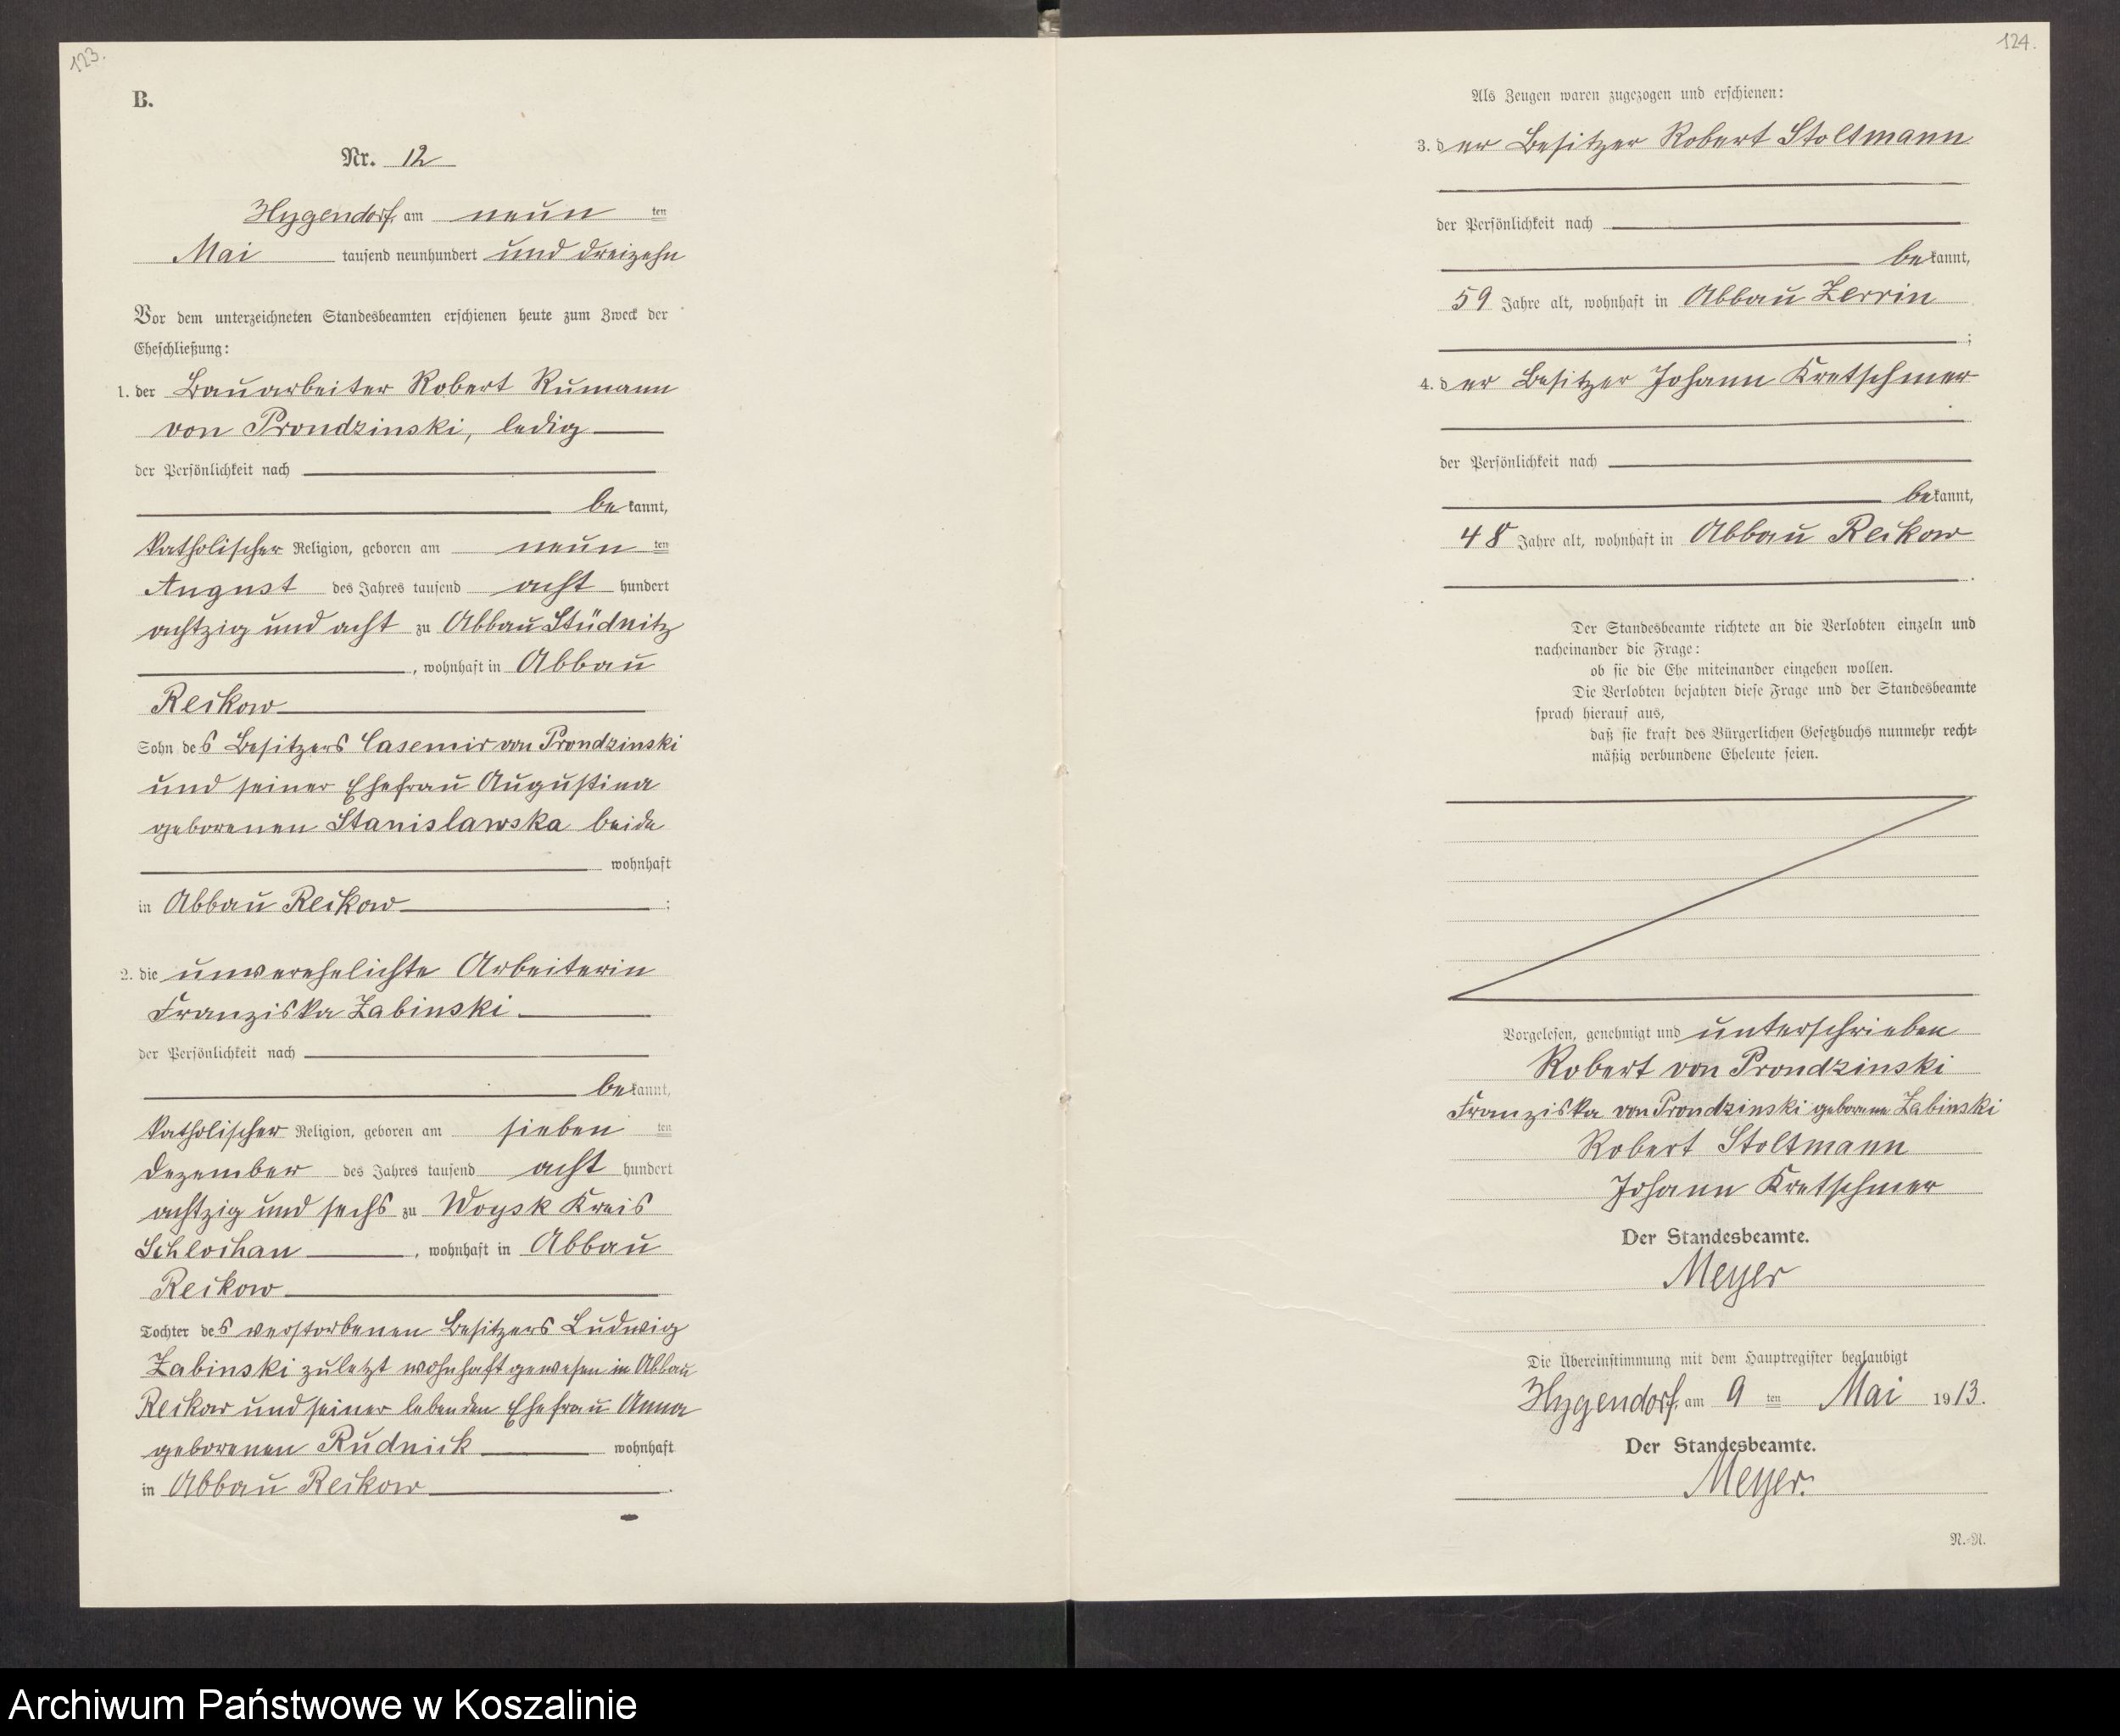 123.
B.
Nr. 12
Hygendorf, am neun ten
Mai tausend neunhundert und dreizehn
Vor dem unterzeichneten Standesbeamten erschienen heute zum Zweck der
Eheschließung:
1. der Bauarbeiter Robert Rumann
von Prondzinski, ledig
der Persönlichkeit nach
bekannt,
katholischer Religion, geboren am neun ten
August des Jahres tausend acht hundert
achtzig und acht zu Abbau Stüdnitz
, wohnhaft in Abbau
Reikow
Sohn des Besitzers Casemir von Prondzinski
und seiner Ehefrau Augustina
geborenen Stanislawska beide
wohnhaft
in Abbau Reikow ;
2. die unverehelichte Arbeiterin
Franziska Zabinski
der Persönlichkeit nach
bekannt,
katholischer Religion, geboren am sieben ten
Dezember des Jahres tausend acht hundert
achtzig und sechs zu Woysk Kreis
Schlochau , wohnhaft in Abbau
Reikow
Tochter des verstorbenen Besitzers Ludwig
Zabinski zuletzt wohnhaft gewesen in Abbau
Reikow und seiner lebenden Ehefrau Anna
geborenen Rudnick wohnhaft
in Abbau Reikow .
124.
Als Zeugen waren zugezogen und erschienen:
3. der Besitzer Robert Stoltmann
der Persönlichkeit nach
bekannt,
59 Jahre alt, wohnhaft in Abbau Zerrin
;
4. der Besitzer Johann Kretschmer
der Persönlichkeit nach
bekannt,
48 Jahre alt, wohnhaft in Abbau Reikow
.
Der Standesbeamte richtete an die Verlobten einzeln und
nacheinander die Frage:
ob sie die Ehe miteinander eingehen wollen.
Die Verlobten bejahten diese Frage und der Standesbeamte
sprach hierauf aus,
daß sie kraft des Bürgerlichen Gesetzbuchs nunmehr recht-
mäßig verbundene Eheleute seien.
Vorgelesen, genehmigt und unterschrieben
Robert von Prondzinski
Franziska von Prondzinski geborene Zabinski
Robert Stoltmann
Johann Kretschmer
Der Standesbeamte.
Meyer
Die Übereinstimmung mit dem Hauptregister beglaubigt
Hygendorf, am 9 ten Mai 1913.
Der Standesbeamte.
Meyer.
N.-N.
Archiwum Państwowe w Koszalinie